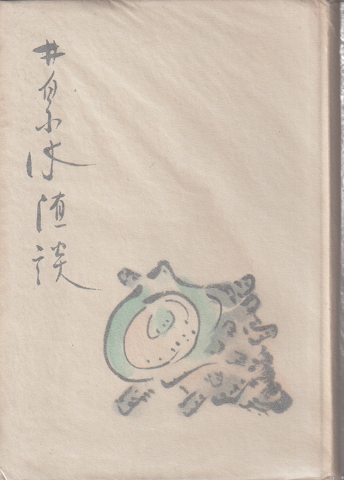 井泉水随談